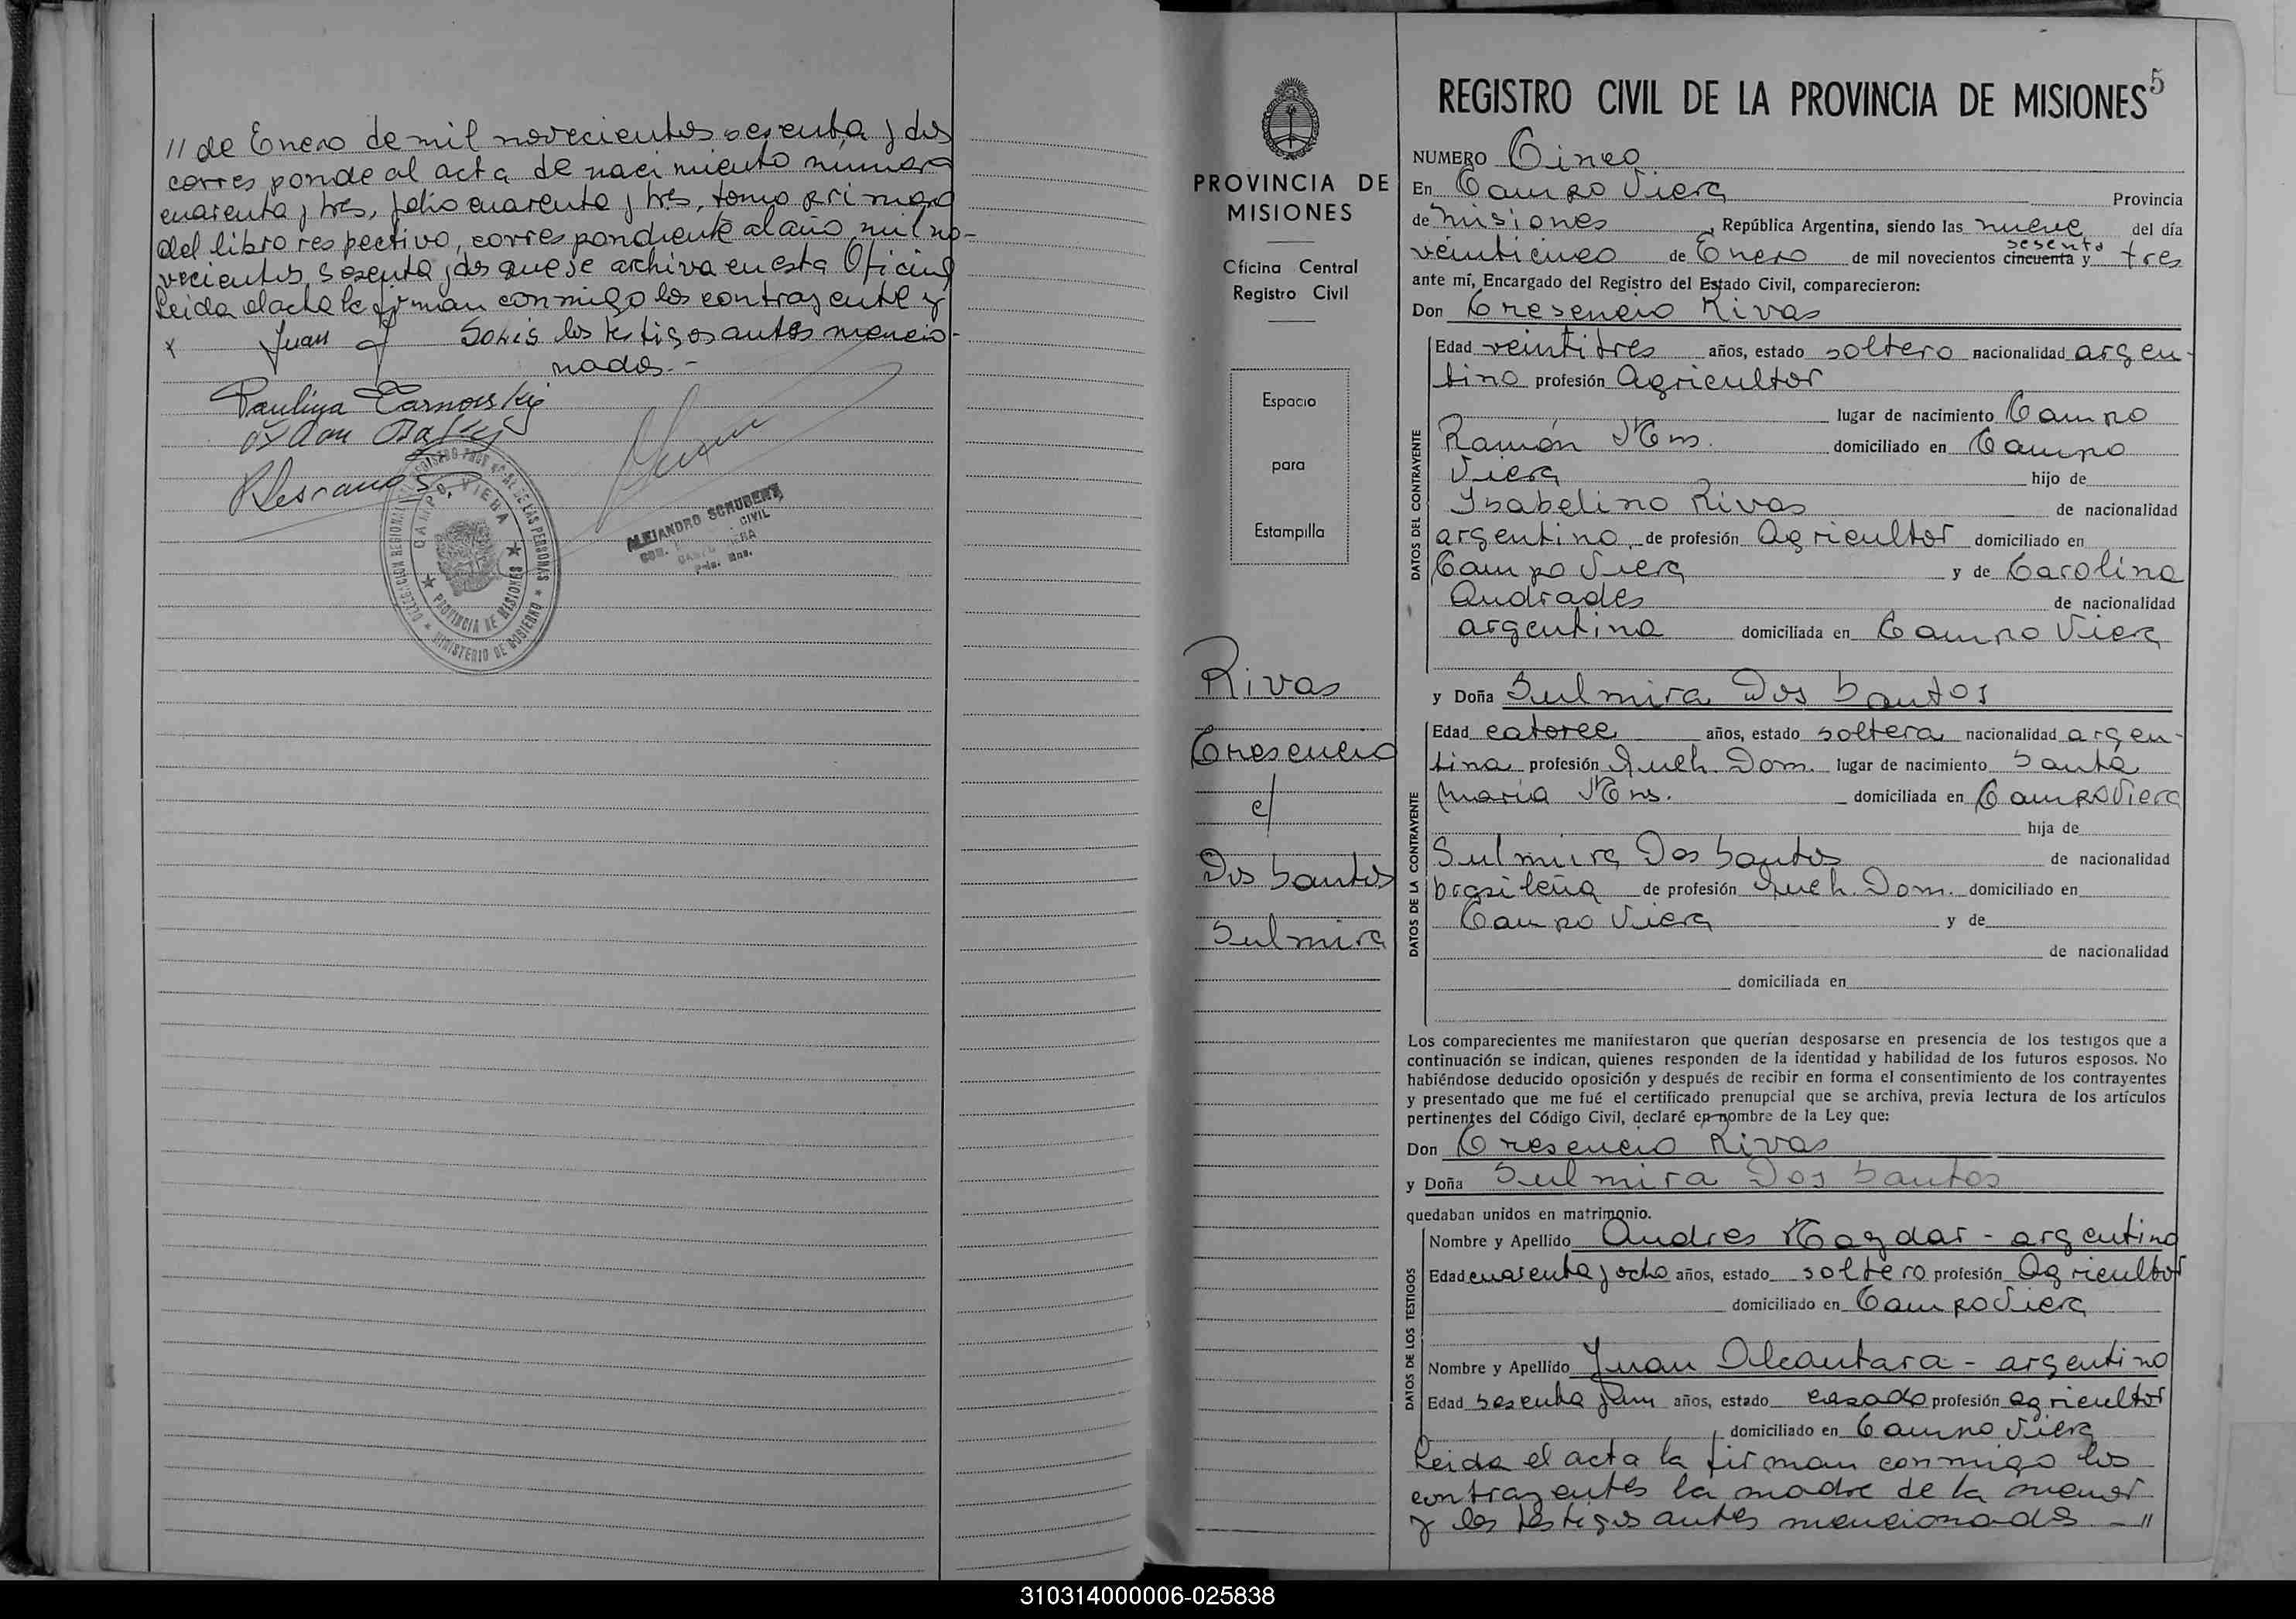 // de Enero de mil novecientos sesenta y dos
corresponde al acta de nacimiento número
cuarenta y tres, folio cuarenta y tres, tomo primero
del libro respectivo, correspondiente al año mil no-
vecientos sesenta y dos que se archiva en esta Oficina
Leida el acta la firman conmigo los contrayente y
x Juan Solis los testigos antes mencio-
nados.-
Paulina Tarnowski
REGISTRO PROV
DE LAS PERSONAS
DELEGACION REGIONAL
CAMPO VIERA
PROVINCIA DE MISIONES
MINISTERIO DE GOBIERNO
ALEJANDRO SCHUBERT
CIVIL
Pcia. Mns.
PROVINCIA DE
MISIONES
Oficina Central
Registro Civil
Espacio
para
Estampilla
Rivas
Cresencio
c/
Dos Santos
Sulmira
REGISTRO CIVIL DE LA PROVINCIA DE MISIONES 5
NUMERO Cinco
En Campo Viera Provincia
de Misiones, República Argentina, siendo las nueve del día
veinticinco de Enero de mil novecientos cincuenta y sesenta tres
ante mí, Encargado del Registro del Estado Civil, comparecieron:
Don Cresencio Rivas
DATOS DEL CONTRAYENTE
Edad veintitres años, estado soltero nacionalidad argen-
tina profesión Agricultor
lugar de nacimiento Campo
Ramón Mns. domiciliado en Campo
Viera hijo de
Ysabelino Rivas de nacionalidad
argentino, de profesión Agricultor domiciliado en
Campo Viera y de Carolina
Andrades de nacionalidad
argentina domiciliada en Campo Viera
y Doña Sulmira Dos Santos
DATOS DE LA CONTRAYENTE
Edad catorce años, estado soltera nacionalidad argen-
tina profesión Queh. Dom. lugar de nacimiento Santa
María Mns. domiciliada en Campo Viera
hija de
Sulmira Dos Santos de nacionalidad
brasileña de profesión Queh. Dom. domiciliado en
Campo Viera y de
de nacionalidad
domiciliada en
Los comparecientes me manifestaron que querían desposarse en presencia de los testigos que a
continuación se indican, quienes responden de la identidad y habilidad de los futuros esposos. No
habiéndose deducido oposición y después de recibir en forma el consentimiento de los contrayentes
y presentado que me fué el certificado prenupcial que se archiva, previa lectura de los artículos
pertinentes del Código Civil, declaré en nombre de la Ley que:
Don Cresencio Rivas
y Doña Sulmira Dos Santos
quedaban unidos en matrimonio.
DATOS DE LOS TESTIGOS
Nombre y Apellido Andres Magdar - argentino
Edad cuarenta y ocho años, estado soltero profesión Agricultor
domiciliado en Campo Viera
Nombre y Apellido Juan Alcantara - argentino
Edad sesenta y un años, estado casado profesión agricultor
domiciliado en Campo Viera
Leida el acta la firman conmigo los
contrayentes la madre de la menor
y los testigos antes mencionados - //
310314000006-025838